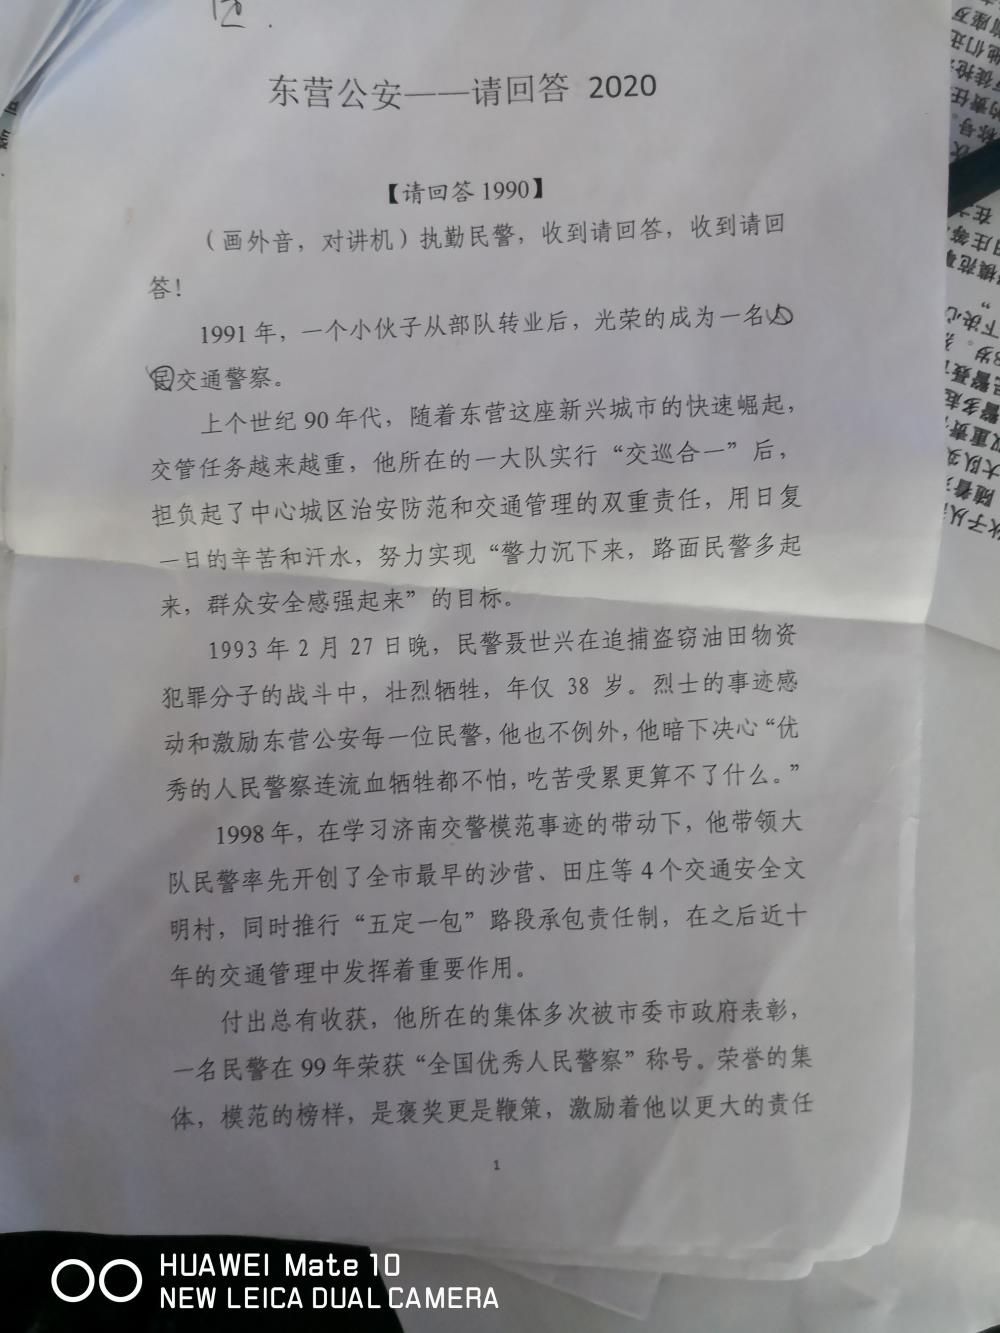 东营公安——请回答 2020
【请回答 1990】
（画外音，对讲机）执勤民警，收到请回答，收到请回
答！
1991 年，一个小伙子从部队转业后，光荣的成为一名人
民交通警察。
上个世纪 90 年代，随着东营这座新兴城市的快速崛起，
交管任务越来越重，他所在的一大队实行“交巡合一”后，
担负起了中心城区治安防范和交通管理的双重责任，用日复
一日的辛苦和汗水，努力实现“警力沉下来，路面民警多起
来，群众安全感强起来”的目标。
1993 年 2 月 27 日晚，民警聂世兴在追捕盗窃油田物资
犯罪分子的战斗中，壮烈牺牲，年仅 38 岁。烈士的事迹感
动和激励东营公安每一位民警，他也不例外，他暗下决心“优
秀的人民警察连流血牺牲都不怕，吃苦受累更算不了什么。”
1998 年，在学习济南交警模范事迹的带动下，他带领大
队民警率先开创了全市最早的沙营、田庄等 4 个交通安全文
明村，同时推行“五定一包”路段承包责任制，在之后近十
年的交通管理中发挥着重要作用。
付出总有收获，他所在的集体多次被市委市政府表彰，
一名民警在 99 年荣获“全国优秀人民警察”称号。荣誉的集
体，模范的榜样，是褒奖更是鞭策，激励着他以更大的责任
1
HUAWEI Mate 10
NEW LEICA DUAL CAMERA